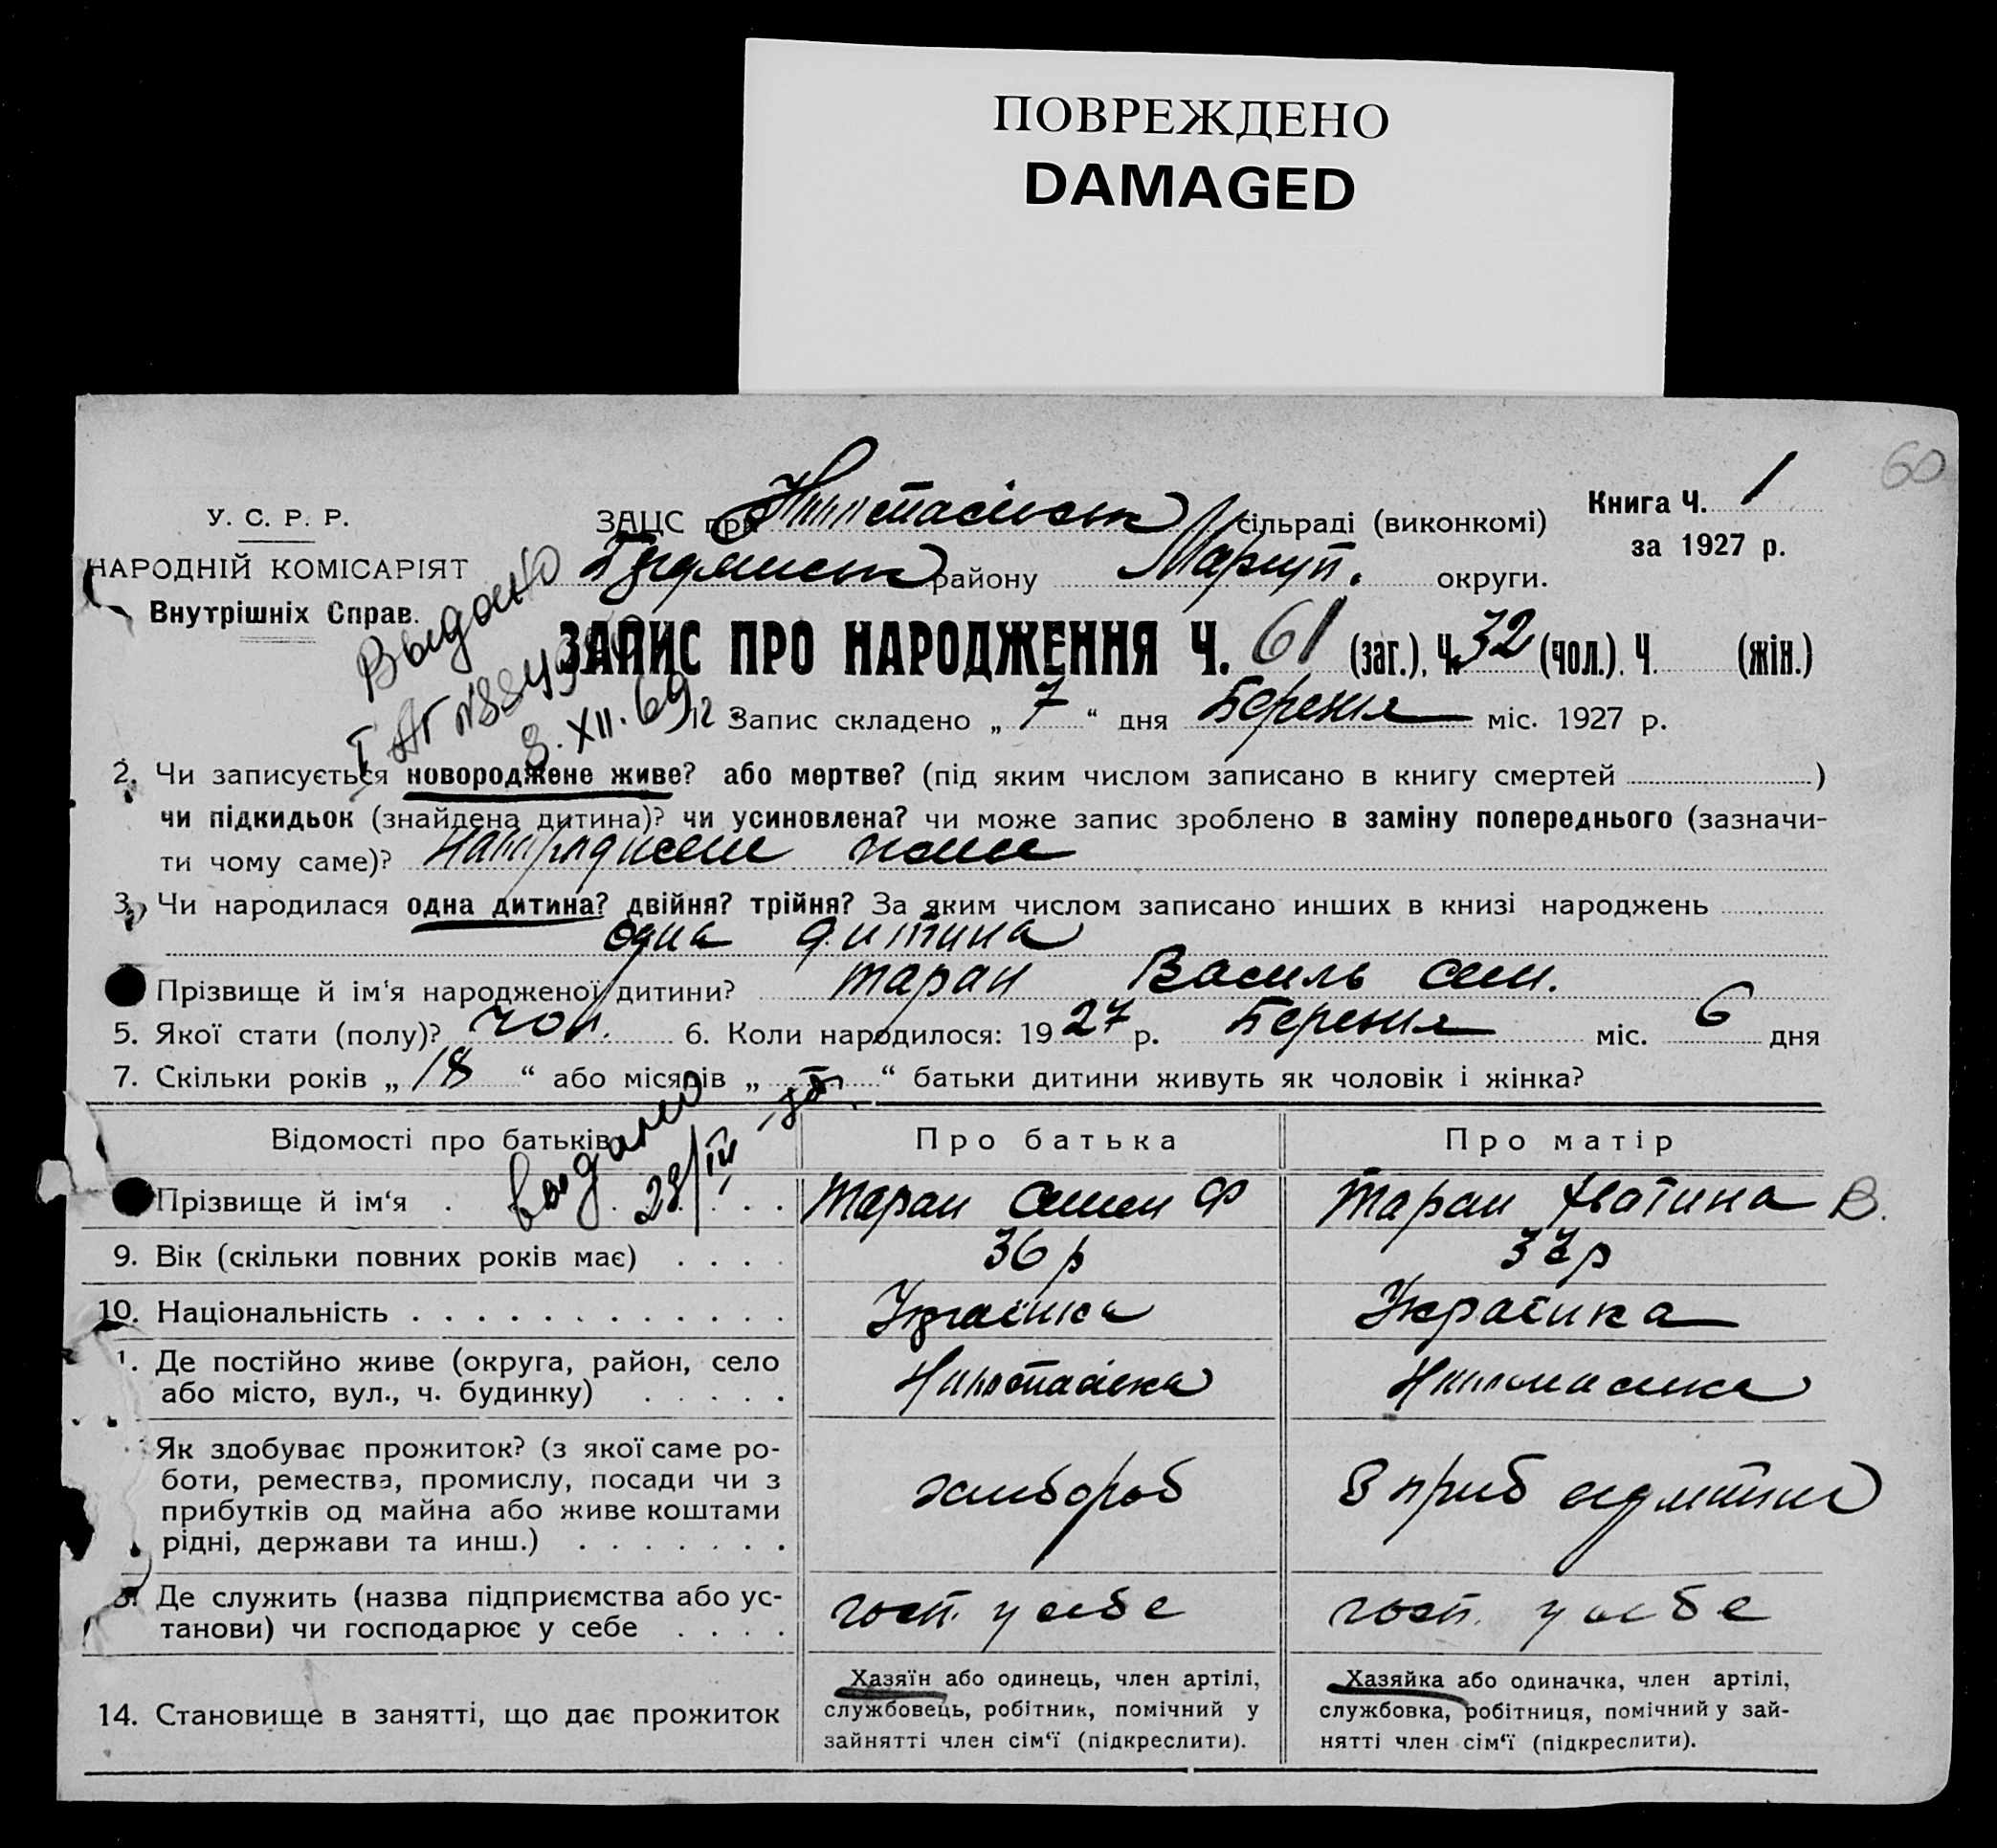 ПОВРЕЖДЕНО
DAMAGED
60
У. С. Р. Р.
НАРОДНІЙ КОМІСАРІЯТ
Внутрішніх Справ.
ЗАЦС при сільраді (виконкомі)
району Маріуп. округи.
Книга Ч. 1
за 1927 р.
Выдано
8. XII. 69
ЗАПИС ПРО НАРОДЖЕННЯ Ч. 61 (заг.), Ч. 32 (чол.). Ч. (жін.)
Запис складено „ 7 “ дня Березня міс. 1927 р.
2. Чи записується новороджене живе? або мертве? (під яким числом записано в книгу смертей )
чи підкидьок (знайдена дитина)? чи усиновлена? чи може запис зроблено в заміну попереднього (зазначи-
ти чому саме)?
3. Чи народилася одна дитина? двійня? трійня? За яким числом записано инших в книзі народжень
одна дитина
Прізвище й ім‘я народженої дитини? Таран Василь Сем.
5. Якої стати (полу)? чол. 6. Коли народилося: 1927 р. Березня міс. 6 дня
7. Скільки років „ 18 “ або місяців „ “ батьки дитини живуть як чоловік і жінка?
выдано
28/IV
Відомості про батьків
Про батька
Про матір
Прізвище й ім‘я
Таран Семен Ф
Таран В.
9. Вік (скільки повних років має)
36 р
37 р
10. Національність
Українка
Українка
1. Де постійно живе (округа, район, село
або місто, вул., ч. будинку)
Як здобуває прожиток? (з якої саме ро-
боти, ремества, промислу, посади чи з
прибутків од майна або живе коштами
рідні, держави та инш.)
хлібороб
Де служить (назва підприємства або ус-
танови) чи господарює у себе
госп. у себе
госп. у себе
14. Становище в занятті, що дає прожиток
Хазяїн або одинець, член артілі,
службовець, робітник, помічний у
зайнятті член сім‘ї (підкреслити).
Хазяйка або одиначка, член артілі,
службовка, робітниця, помічний у зай-
нятті член сім‘ї (підкреслити).